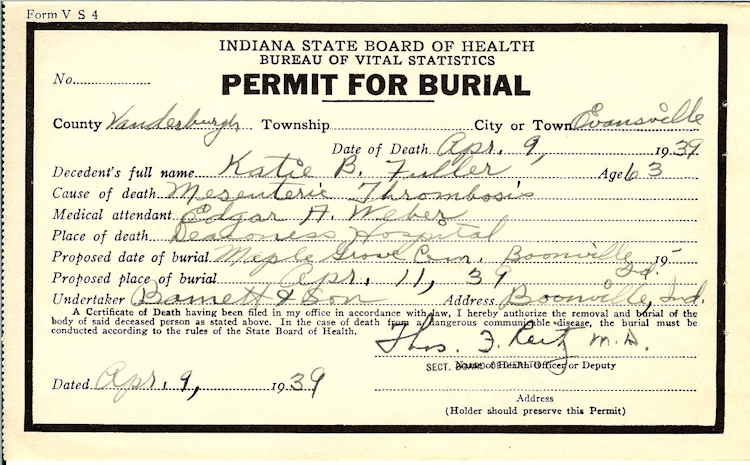 Form V S 4
INDIANA STATE BOARD OF HEALTH
BUREAU OF VITAL STATISTICS
No.
PERMIT FOR BURIAL
County Vanderburgh Township City or Town Evansville
Date of Death Apr. 9, 1939
Decedent's full name Katie B. Fuller Age 63
Cause of death Mesenteric Thrombosis
Medical attendant Edgar A. Weber
Place of death Deaconess Hospital
Proposed date of burial Maple Grove Cem. Boonville 19-
Ind.
Proposed place of burial Apr. 11, 39
Undertaker Barnett & Son Address Boonville, Ind.
A Certificate of Death having been filed in my office in accordance with law, I hereby authorize the removal and burial of the
body of said deceased person as stated above. In the case of death from a dangerous communicable disease, the burial must be
conducted according to the rules of the State Board of Health.
Thos. J. Reitz M.D.
SECT. BOARD OF HEALTH Name of Health Officer or Deputy
Dated Apr. 9, 1939
Address
(Holder should preserve this Permit)